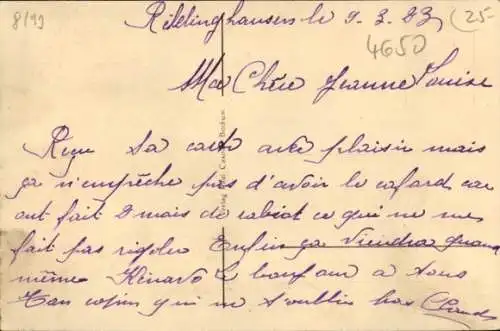 8/99
Recklinghausen le 9.3.23 (25-
4650
Ma Chère Jeanne Louise
Reçu ta carte avec plaisir mais
ça n'empêche pas d'avoir le cafard car
ont fait 2 mais de rabiot ce qui ne me
fait pas rigoler Enfin ça viendra quand
même bonjour a tous
Ton copin qui ne t'oublie pas